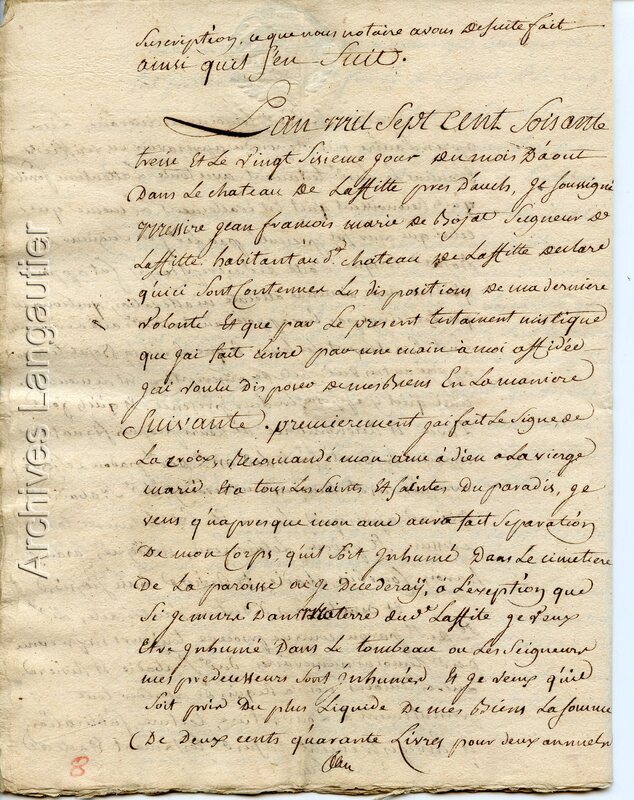 suscription, ce que nous notaire avons desuite fait
ainsi quil s'en suit.
Lan mil sept cent soisante
treise et le vingt sisieme jour du mois Daout
Dans le chateau de Laffitte pres D'auch, je soussigné
messire jean francois marie de Seigneur de
Laffitte habitant au dt. chateau de Laffitte declare
qu'ici sont contenues Les dispositions de ma derniere
volonté et que par Le present testament mistique
que jai fait ecrire par une main a moi affidée
jai voulu disposer de mes Biens en La maniere
suivante. premierement jai fait Le signe de
La croix, Recomandé mon ame à dieu a La vierge
marie et a tous Les saints et saintes du paradis, je
veus qu'apres que mon ame aura fait separation
De mon corps, quil soit inhumé Dans Le cimetiere
De La paroisse ou je Decederaÿ, à Lexeption que
si je murs Dans ma terre dud. Laffite je veux
etre inhumé Dans Le tombeau ou Les seigneurs
mes predecusseurs sont inhumés, et je veux qu'il
soit pris Du plus Liquide de mes Biens La somme
De Deux cents quarante Livres pour deux annuels
8
Archives Langautier